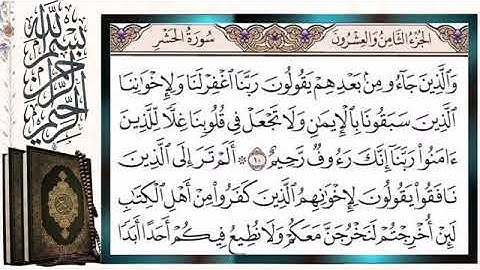 بسم الله الرحمن الرحيم
الجزء الثامن والعشرون
سورة الحشر
وَالَّذِينَ جَاءُو مِنۢ بَعْدِهِمْ يَقُولُونَ رَبَّنَا ٱغْفِرْ لَنَا وَلِإِخْوَٰنِنَا
ٱلَّذِينَ سَبَقُونَا بِٱلْإِيمَٰنِ وَلَا تَجْعَلْ فِى قُلُوبِنَا غِلًّا لِّلَّذِينَ
ءَامَنُوا۟ رَبَّنَآ إِنَّكَ رَءُوفٌ رَّحِيمٌ ١٠ ۞ أَلَمْ تَرَ إِلَى ٱلَّذِينَ
نَافَقُوا۟ يَقُولُونَ لِإِخْوَٰنِهِمُ ٱلَّذِينَ كَفَرُوا۟ مِنْ أَهْلِ ٱلْكِتَٰبِ
لَئِنْ أُخْرِجْتُمْ لَنَخْرُجَنَّ مَعَكُمْ وَلَا نُطِيعُ فِيكُمْ أَحَدًا أَبَدًا